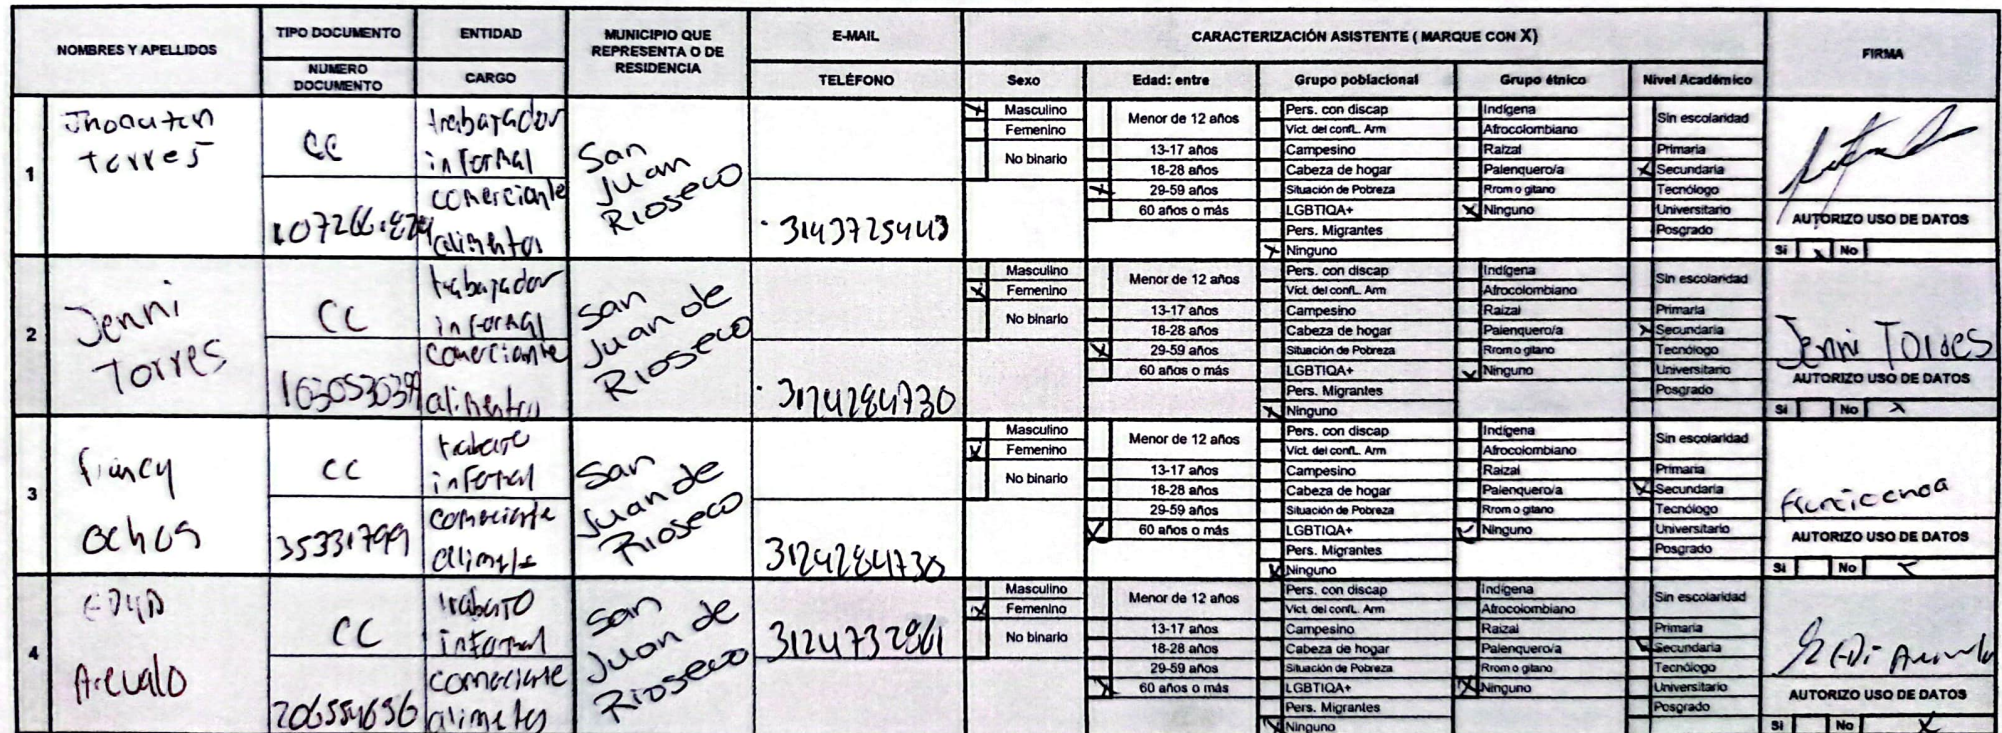 NOMBRES Y APELLIDOS
TIPO DOCUMENTO
NUMERO DOCUMENTO
ENTIDAD
CARGO
MUNICIPIO QUE REPRESENTA O DE RESIDENCIA
E-MAIL
TELÉFONO
CARACTERIZACIÓN ASISTENTE ( MARQUE CON X)
Sexo
Edad: entre
Grupo poblacional
Grupo étnico
Nivel Académico
FIRMA
1
torres
CC
trabajador
informal
comerciante
alimentos
San
Juan
Rioseco
3143725443
X Masculino
Femenino
No binario
Menor de 12 años
13-17 años
18-28 años
X 29-59 años
60 años o más
Pers. con discap
Vict. del confL. Arm
Campesino
Cabeza de hogar
Situación de Pobreza
LGBTIQA+
Pers. Migrantes
X Ninguno
Indígena
Afrocolombiano
Raizal
Palenquero/a
Rrom o gitano
X Ninguno
Sin escolaridad
Primaria
X Secundaria
Tecnólogo
Universitario
Posgrado
AUTORIZO USO DE DATOS
Si X No
2
Jenni
Torres
CC
trabajador
informal
comerciante
alimentos
San
Juan de
Rioseco
Masculino
X Femenino
No binario
Menor de 12 años
13-17 años
18-28 años
X 29-59 años
60 años o más
Pers. con discap
Vict. del confL. Arm
Campesino
Cabeza de hogar
Situación de Pobreza
LGBTIQA+
Pers. Migrantes
X Ninguno
Indígena
Afrocolombiano
Raizal
Palenquero/a
Rrom o gitano
X Ninguno
Sin escolaridad
Primaria
X Secundaria
Tecnólogo
Universitario
Posgrado
Jenni Torres
AUTORIZO USO DE DATOS
Si No X
3
ochoa
CC
informal
35331799
San
Juan de
Rioseco
3124284730
Masculino
X Femenino
No binario
Menor de 12 años
13-17 años
18-28 años
29-59 años
X 60 años o más
Pers. con discap
Vict. del confL. Arm
Campesino
Cabeza de hogar
Situación de Pobreza
LGBTIQA+
Pers. Migrantes
X Ninguno
Indígena
Afrocolombiano
Raizal
Palenquero/a
Rrom o gitano
X Ninguno
Sin escolaridad
Primaria
X Secundaria
Tecnólogo
Universitario
Posgrado
AUTORIZO USO DE DATOS
Si No X
4
Arevalo
CC
informal
San
Juan de
Rioseco
3124732861
Masculino
X Femenino
No binario
Menor de 12 años
13-17 años
18-28 años
29-59 años
X 60 años o más
Pers. con discap
Vict. del confL. Arm
Campesino
Cabeza de hogar
Situación de Pobreza
LGBTIQA+
Pers. Migrantes
X Ninguno
Indígena
Afrocolombiano
Raizal
Palenquero/a
Rrom o gitano
X Ninguno
Sin escolaridad
Primaria
X Secundaria
Tecnólogo
Universitario
Posgrado
AUTORIZO USO DE DATOS
Si No X